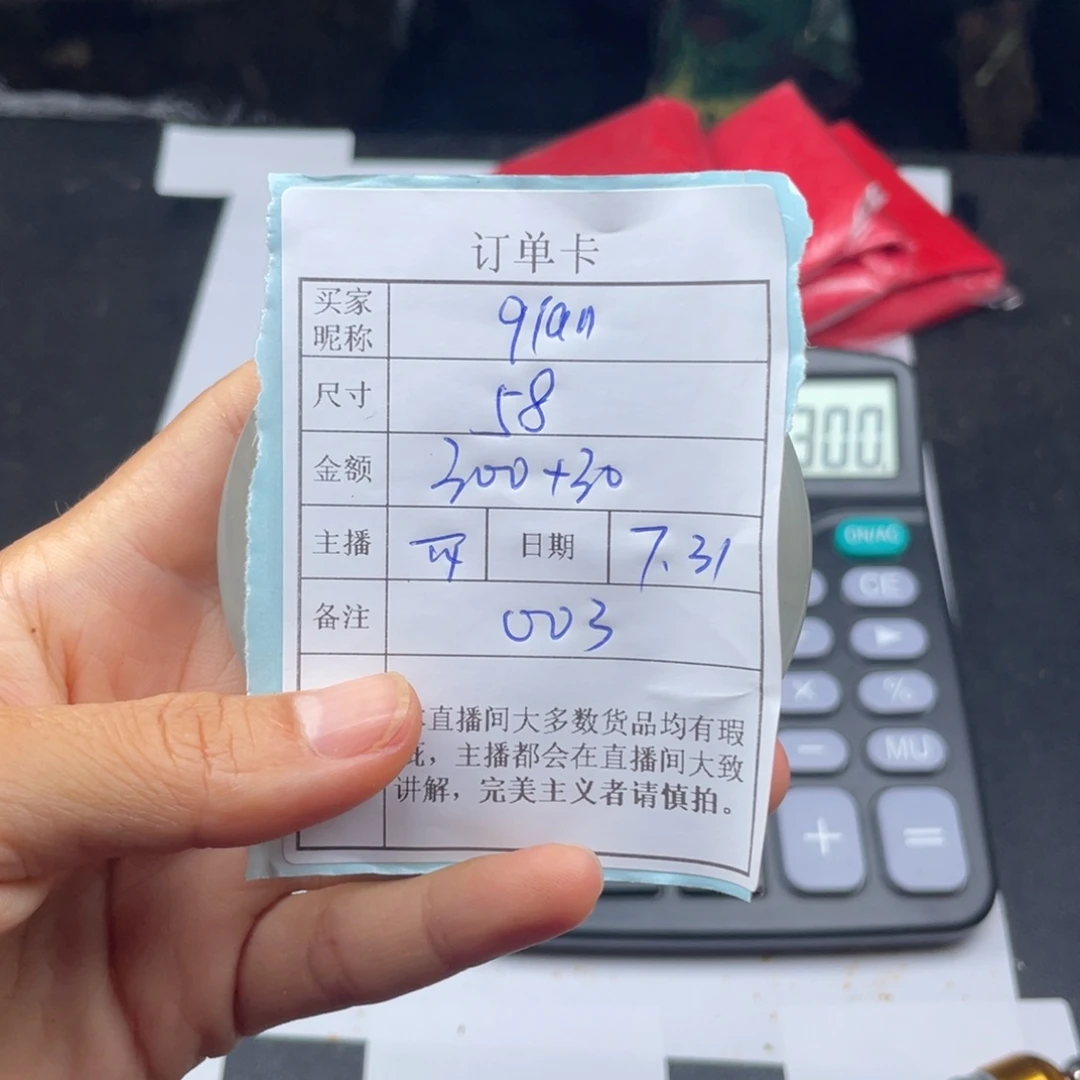 订单卡
买家
昵称
qian
尺寸
58
金额
300+30
主播
日期
7.31
备注
003
直播间大多数货品均有瑕
，主播都会在直播间大致
讲解，完美主义者请慎拍。
300.
ON/AC
CE
▶
×
%
−
MU
+
=